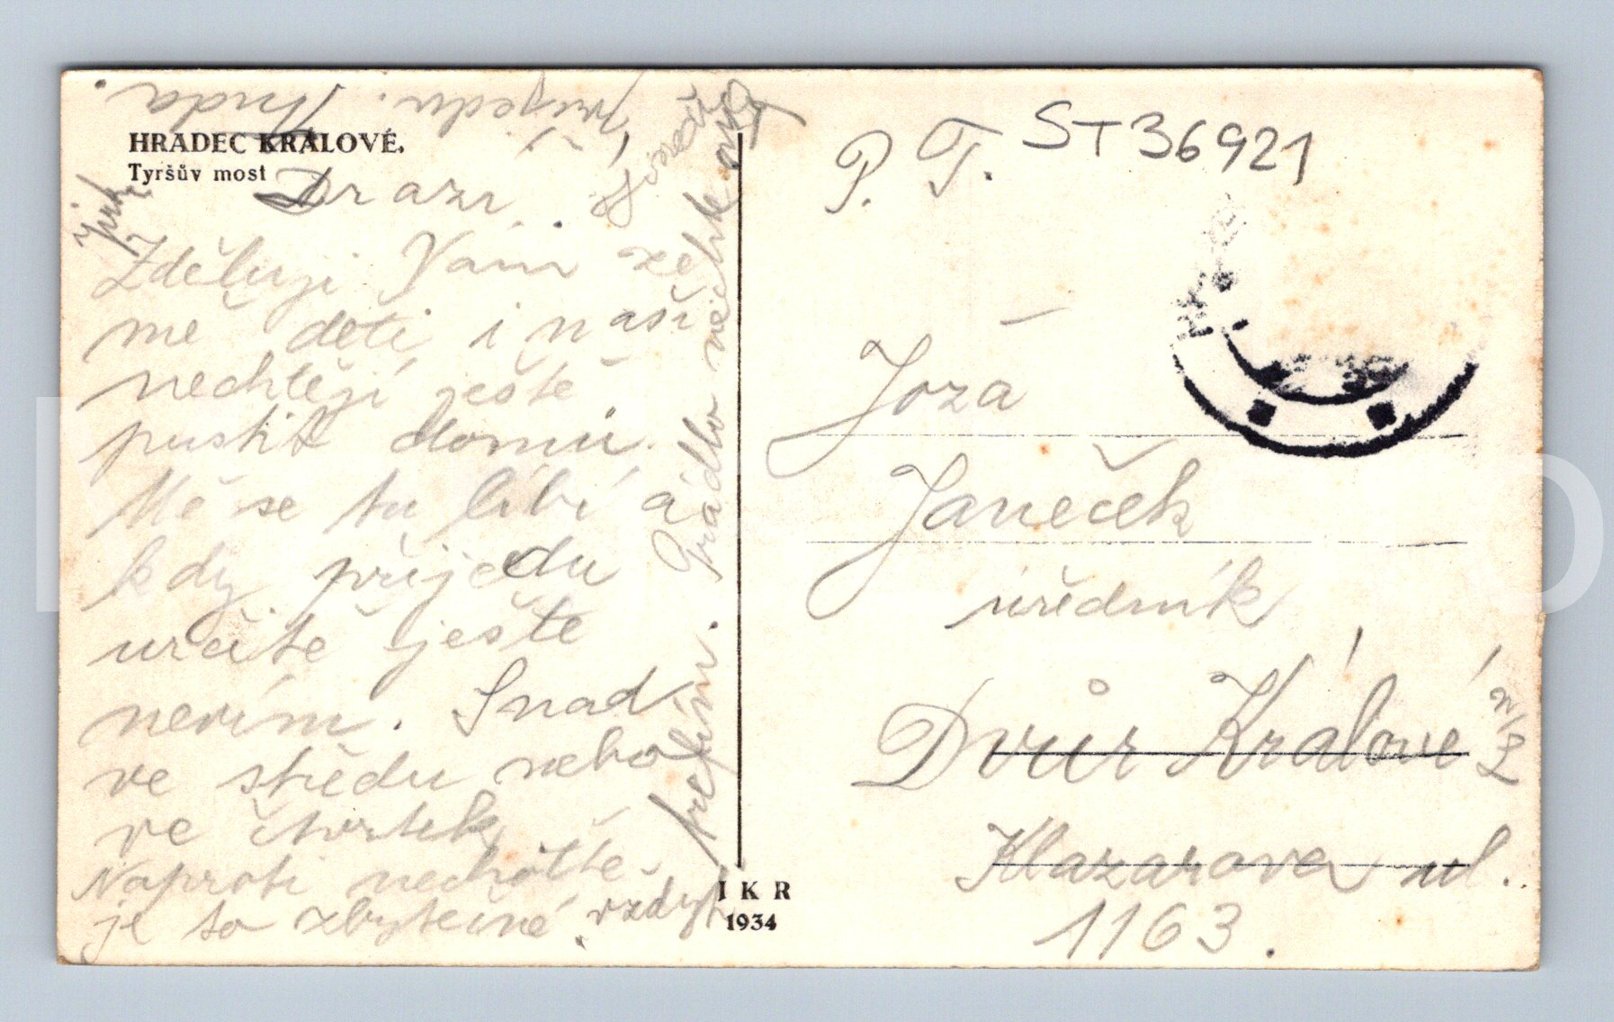 HRADEC KRÁLOVÉ.
Tyršův most
Drazí.
Zděluji Vám že
mě děti i naši
nechtějí ještě
pustit domů.
Mě se tu líbí a
kdy přijedu
určitě ještě
nevím. Snad
ve středu nebo
ve čtvrtek
Naproti nechoďte
je to zbytečné. vždyť
trefím. Prádlo nechte
přijedu.
I K R
1934
P. T.
ST36921
Joža
Janeček
úředník
Dvůr Králové
n/L
Klazarova ul.
1163.